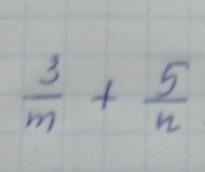 3/m + 5/n